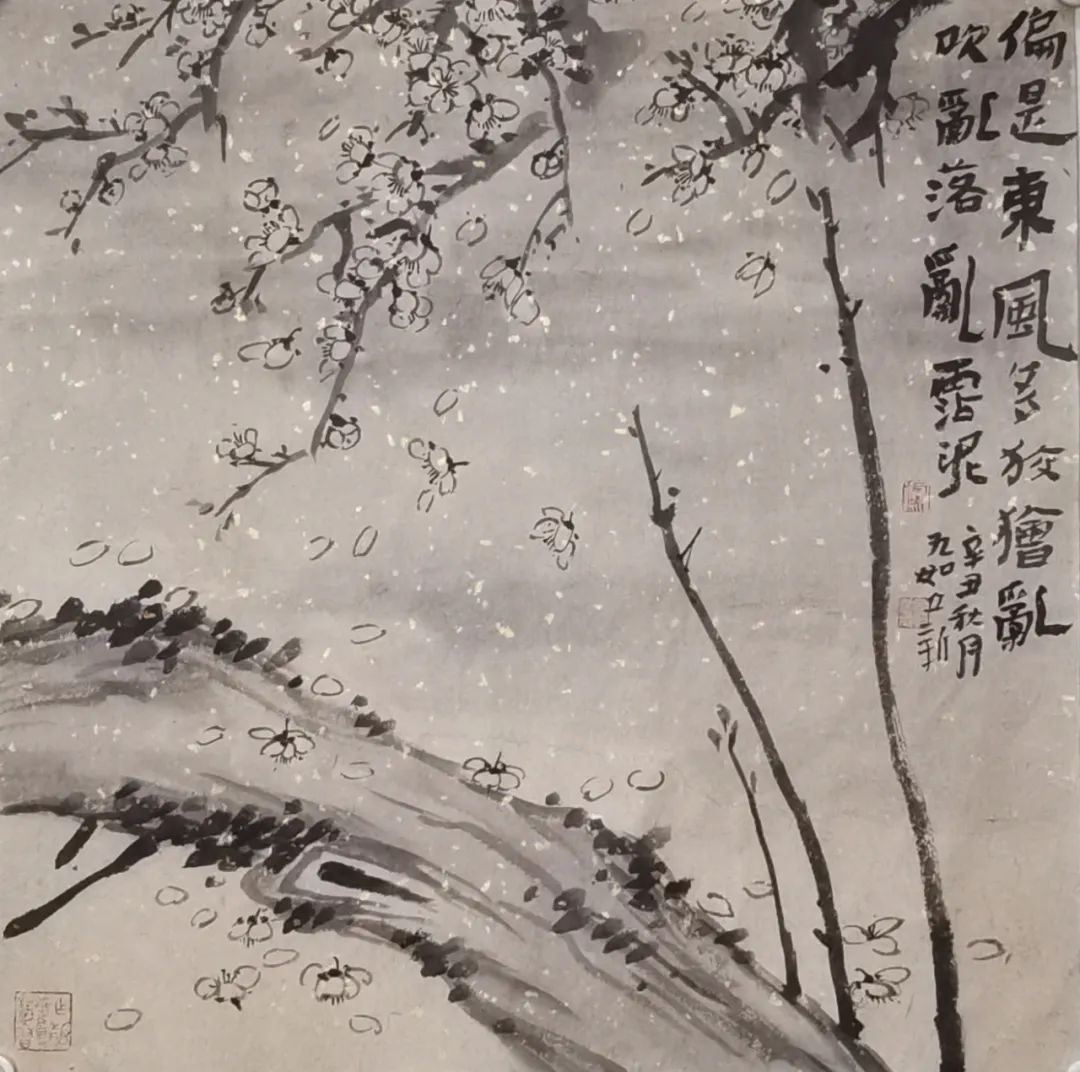 偏是東風多狡獪亂
吹亂落亂霑泥
辛丑秋月
九如立新